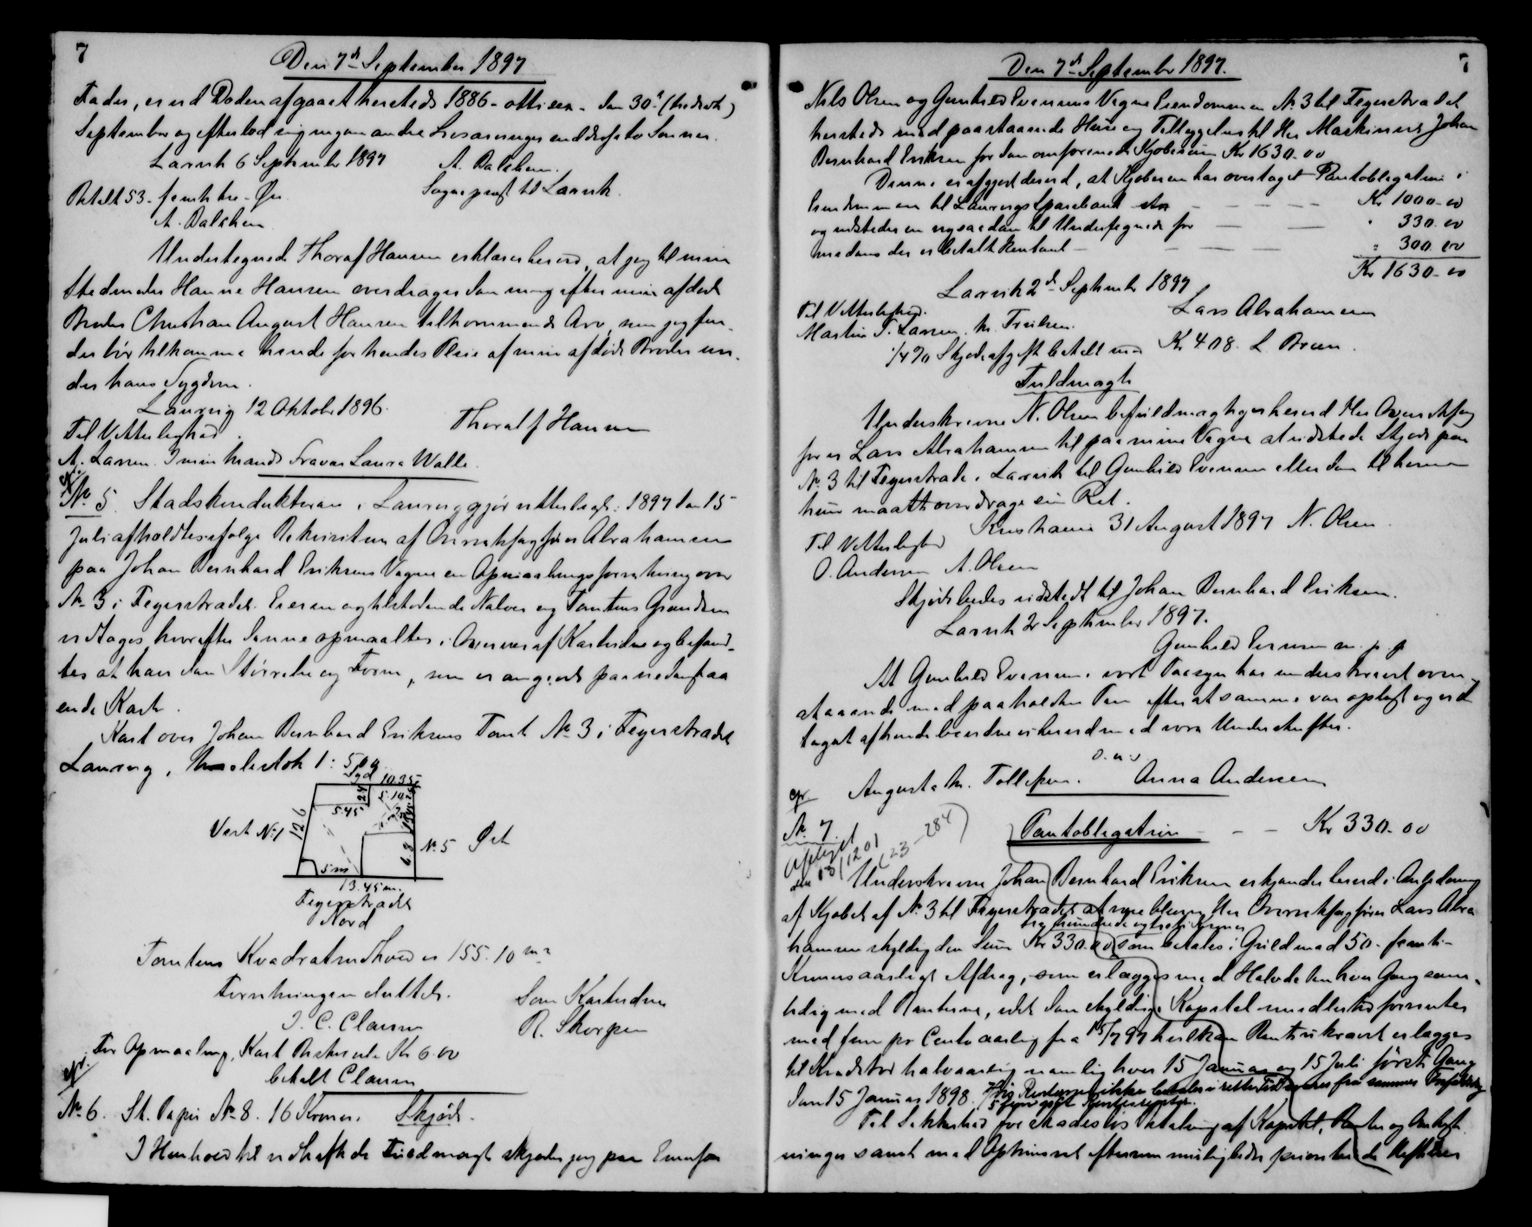 7
Den 7de September 1897
Fader, er ved Døden afgaaet hersteds 1886 - otti sex - den 30te (tredivte)
September og efterlod sig ingen andre Livsarvinger end de to Sønner.
Larvik 6 September 1897 A. Dalchen.
Betalt 53 - femti tre - Øre Sogneprest til Larvik.
A. Dalchen
Undertegnede Thoralf Hansen erklærer herved, at jeg til min
Stedmoder Hanne Hansen overdrager den mig efter min afdøde
Broder Christian August Hansen tilkommende Arv, som jeg fin-
der bør tilkomme hende for hendes Pleie af min afdøde Broder un-
der hans Sygdom.
Laurvig 12 Oktober 1896. Thoralf Hansen
Til Vitterlighed
A. Larsen. I min Mands Fravær Laura Walle.
No 5. Stadskonduktøren i Laurvig gjør vitterligt: 1897 den 15
Juli afholdtes ifølge Rekvisition af Overretssagfører Abrahamsen
paa Johan Bernhard Eriksens Vegne en Opmaalingsforretning over
No 3 i Fegerstrædet. Eieren og tilstødende Naboer og Tomtens Grændser
vedtoges hvorefter denne opmaaltes i Overvær af Karteirne og befand-
tes at have den Størrelse og Form, som er angivet paa nedenstaa
ende Kart.
Kart over Johan Bernhard Eriksens Tomt No 3 i Fegerstrædet
Laurvig, Maalestok 1:500.
Syd 10.35
5.45 5.10
Vest No 1 12.6 No 5 Øst
6.3
5 m
13.45 m.
Fegerstrædet
Nord
Tomtens Kvadratindhold er 155.10 m2
Forretningen sluttet.
J. C. Clausen R. Skorpen
For Opmaaling, Kart Beskrivelse Kr 6.00
betalt Clausen
No 6. St. Papir No 8. 16 Kroner. Skjøde.
I Henhold til vedhæftede Fuldmagt skjøder jeg paa
7
Den 7de September 1897.
Nils Olsen og Gunhild Evensens Vegne Eiendommen No 3 til Fegerstrædet
hersteds med paastaaende Huse og Tilliggelser til Hr. Maskinist Johan
Bernhard Eriksen for den omforenede Kjøbesum Kr 1630.00
Denne er afgjort derved, at Kjøberen har overtaget Pantobligation i
Eiendommen til Laurvigs Sparebank stor - - - - Kr 1000.00
og udstedes en ny saadan til Undertegnede for - - - " 330.00
medens der er betalt kontant - - - - " 300.00
Kr 1630.00
Larvik 2de September 1897
Til Vitterlighed. Lars Abrahamsen
Martin T. Larsen.
1/4 % Skjødeafgift betalt med Kr 4.08. L. Bruun.
Fuldmagt
Underskrevne N. Olsen befuldmægtiger herved Hr. Overretssag
fører Lars Abrahamsen til paa mine Vegne at udstede Skjøde paa
No 3 til Fegerstræde i Larvik til Gunhild Evensen eller den til hvem
hun maatte overdrage sin Ret.
Kristiania 31 August 1897 N. Olsen.
Til Vitterlighed
O. Andersen A. Olsen
Skjødet bedes udstedt til Johan Bernhard Eriksen.
Larvik 2 September 1897.
Gunhild Evensen m. p. p.
At Gunhild Evensen i vort Paasyn har underskrevet oven-
staaende med paaholden Pen efterat samme var oplæst og ved
taget af hende bevidnes herved med vore Underskrifter.
Augusta M. Tollefsen. Anna Andersen
No 7. Pantobligation - - Kr 330.00
Aflyst
(23-284)
Underskrevne Johan Bernhard Eriksen erkjender herved i Anledning
af Kjøbet af No 3 til Fegerstrædet at være bleven Hr. Overretssagfører Lars Abra
hamsen skyldig den Sum Kr 330.00 som betales i Gjæld med 50 - femti -
trehundrede og tretti Kroner
Kroners aarligt Afdrag, som erlægges med Halvdelen hver Gang sam-
tidig med Renterne, idet den skyldige Kapital imidlertid forrentes
med fem pr Cento aarlig fra 15/7 97 hvilken Rente ukrævet erlægges
til Kreditor halvaarlig nemlig hver 15 Januar og 15 Juli første Gang
den 15 Januar 1898.
Til Sikkerhed for skadesløs Betaling af Kapital, Renter og Omkost
ninger samt med Oprinnsret efter